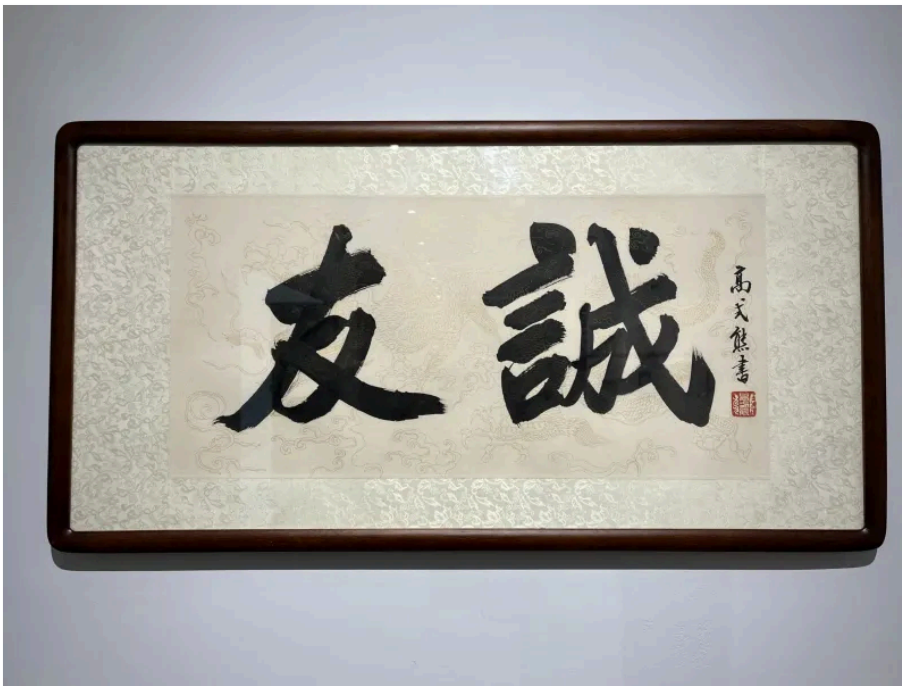 誠友
高式熊書